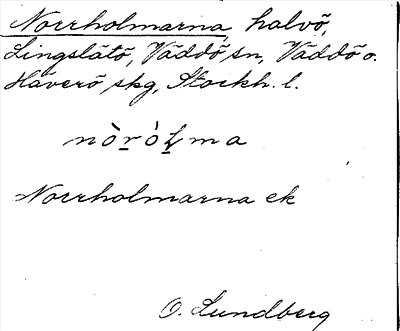 Norrholmarna, halvö,
Lingslätö, Väddö sn, Väddö o.
Häverö skg, Stockh. l.
nòròḷma
Norrholmarna ek
O. Lundberg